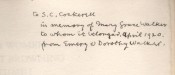 To S.C. Cockerell
in memory of Mary Grace Walker
to whom it belonged, April 1920.
from Emery & Dorothy Walker.